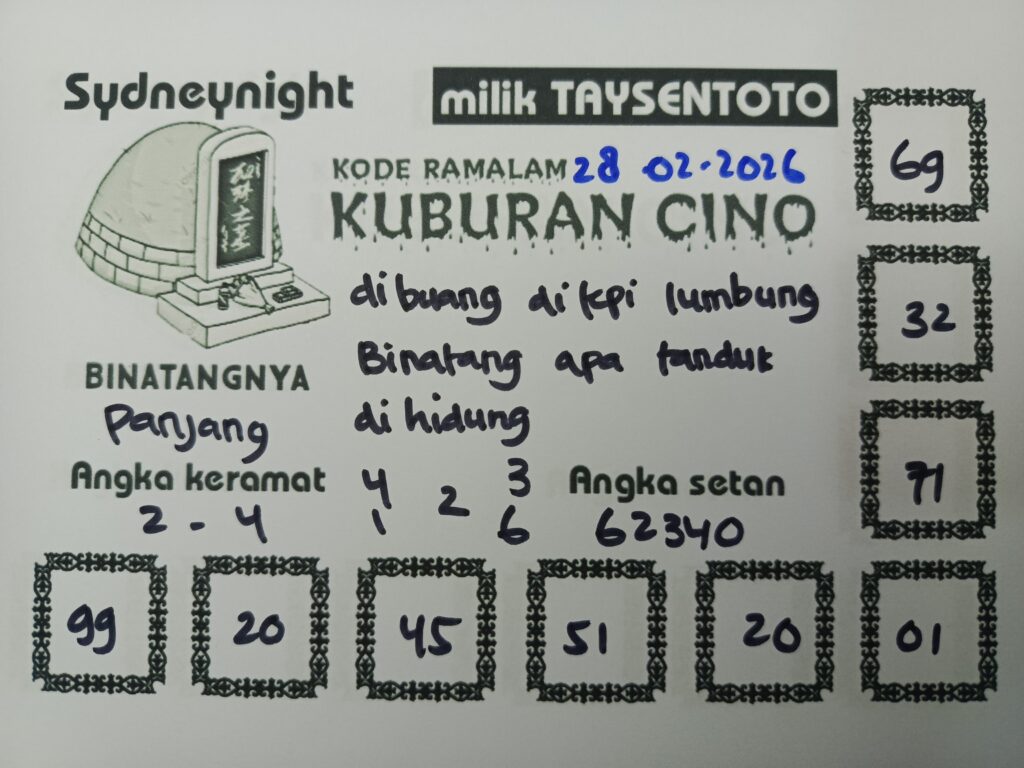 Sydneynight
milik TAYSENTOTO
KODE RAMALAM 28 02-2026
KUBURAN CINO
dibuang di tepi lumbung
Binatang apa tanduk
di hidung
BINATANGNYA
Panjang
Angka keramat
2 - 4
4 2 3
1 6
Angka setan
62340
69
32
71
99 20 45 51 20 01